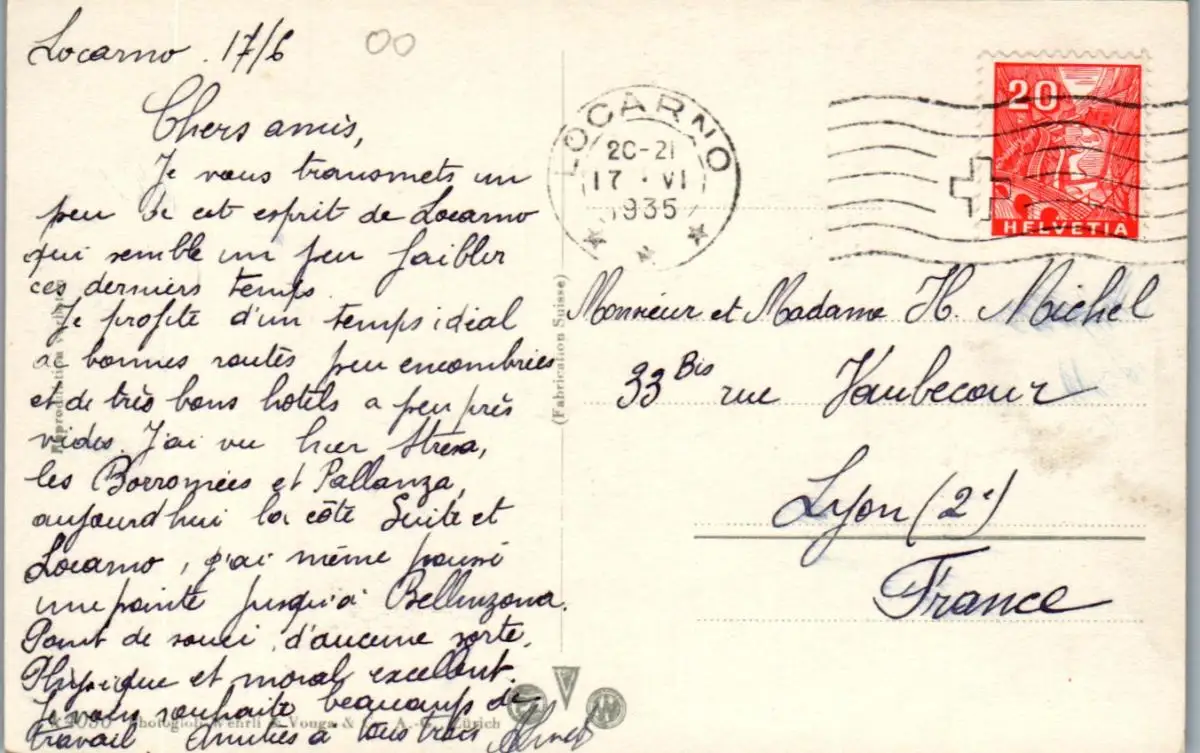 Locarno . 17/6
00
Chers amis,
Je vous transmets un
peu de cet esprit de Locarno
qui semble un peu faiblir
ces derniers temps.
Je profite d'un temps idéal
de bonnes routes peu encombrées
et de très bons hotels a peu près
vides. J'ai vu hier Stresa,
les Borromées et Pallanza,
aujourd'hui la côte Suite et
Locarno, j'ai même poussé
une pointe jusqu'à Bellinzona.
Point de souci d'aucune sorte.
Physique et moral excellent.
Je vous souhaite beaucoup de
travail. Amitiés à tous trois
LOCARNO
20-21
17 . VI
1935
20
HELVETIA
Monsieur et Madame H. Michel
33 Bis rue Vaubecour
Lyon (2e)
France
(Fabrication Suisse)
Photoglob-Wehrli & Vouga & Co. A.-G. Zürich